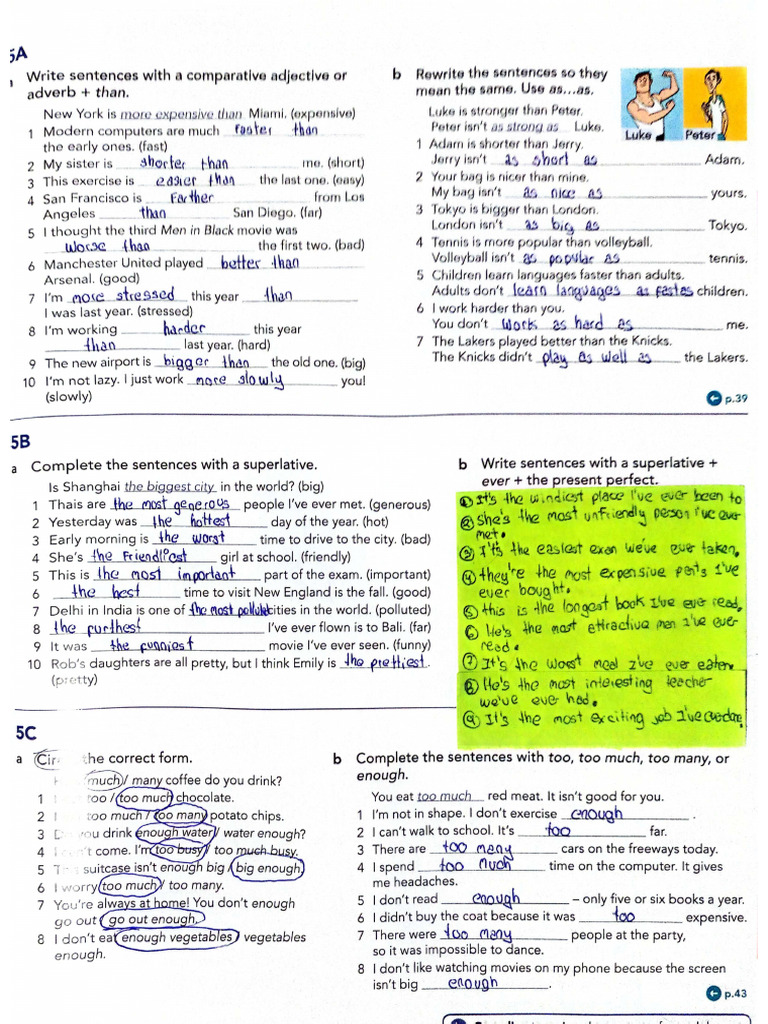 5A
Write sentences with a comparative adjective or
adverb + than.
New York is more expensive than Miami. (expensive)
1 Modern computers are much faster than
the early ones. (fast)
2 My sister is shorter than me. (short)
3 This exercise is easier than the last one. (easy)
4 San Francisco is farther from Los
Angeles than San Diego. (far)
5 I thought the third Men in Black movie was
worse than the first two. (bad)
6 Manchester United played better than
Arsenal. (good)
7 I'm more stressed this year than
I was last year. (stressed)
8 I'm working harder this year
than last year. (hard)
9 The new airport is bigger than the old one. (big)
10 I'm not lazy. I just work more slowly you!
(slowly)
b Rewrite the sentences so they
mean the same. Use as...as.
Luke is stronger than Peter.
Peter isn't as strong as Luke.
Luke Peter
1 Adam is shorter than Jerry.
Jerry isn't as short as Adam.
2 Your bag is nicer than mine.
My bag isn't as nice as yours.
3 Tokyo is bigger than London.
London isn't as big as Tokyo.
4 Tennis is more popular than volleyball.
Volleyball isn't as popular as tennis.
5 Children learn languages faster than adults.
Adults don't learn languages as fastas children.
6 I work harder than you.
You don't work as hard as me.
7 The Lakers played better than the Knicks.
The Knicks didn't play as well as the Lakers.
p.39
5B
a Complete the sentences with a superlative.
Is Shanghai the biggest city in the world? (big)
1 Thais are the most generous people I've ever met. (generous)
2 Yesterday was the hottest day of the year. (hot)
3 Early morning is the worst time to drive to the city. (bad)
4 She's the Friendliest girl at school. (friendly)
5 This is the most important part of the exam. (important)
6 the best time to visit New England is the fall. (good)
7 Delhi in India is one of the most polluted cities in the world. (polluted)
8 the furthest I've ever flown is to Bali. (far)
9 It was the funniest movie I've ever seen. (funny)
10 Rob's daughters are all pretty, but I think Emily is the prettiest.
(pretty)
b Write sentences with a superlative +
ever + the present perfect.
① It's the windiest place I've ever been to
② she's the most unfriendly person I've ever
met.
③ It's the easiest exam we've ever taken.
④ they're the most expensive pants I've
ever bought.
⑤ this is the longest book I've ever read.
⑥ He's the most attractive men I've ever
read.
⑦ It's the worst meal I've ever eaten
⑧ He's the most interesting teacher
we've ever had.
⑨ It's the most exciting job I've
5C
a Cir the correct form.
much / many coffee do you drink?
1 too / too much chocolate.
2 too much / too many potato chips.
3 you drink enough water / water enough?
4 come. I'm too busy / too much busy.
5 suitcase isn't enough big / big enough.
6 I worry too much / too many.
7 You're always at home! You don't enough
go out / go out enough.
8 I don't eat enough vegetables / vegetables
enough.
b Complete the sentences with too, too much, too many, or
enough.
You eat too much red meat. It isn't good for you.
1 I'm not in shape. I don't exercise enough.
2 I can't walk to school. It's too far.
3 There are too many cars on the freeways today.
4 I spend too much time on the computer. It gives
me headaches.
5 I don't read enough – only five or six books a year.
6 I didn't buy the coat because it was too expensive.
7 There were too many people at the party,
so it was impossible to dance.
8 I don't like watching movies on my phone because the screen
isn't big enough.
p.43